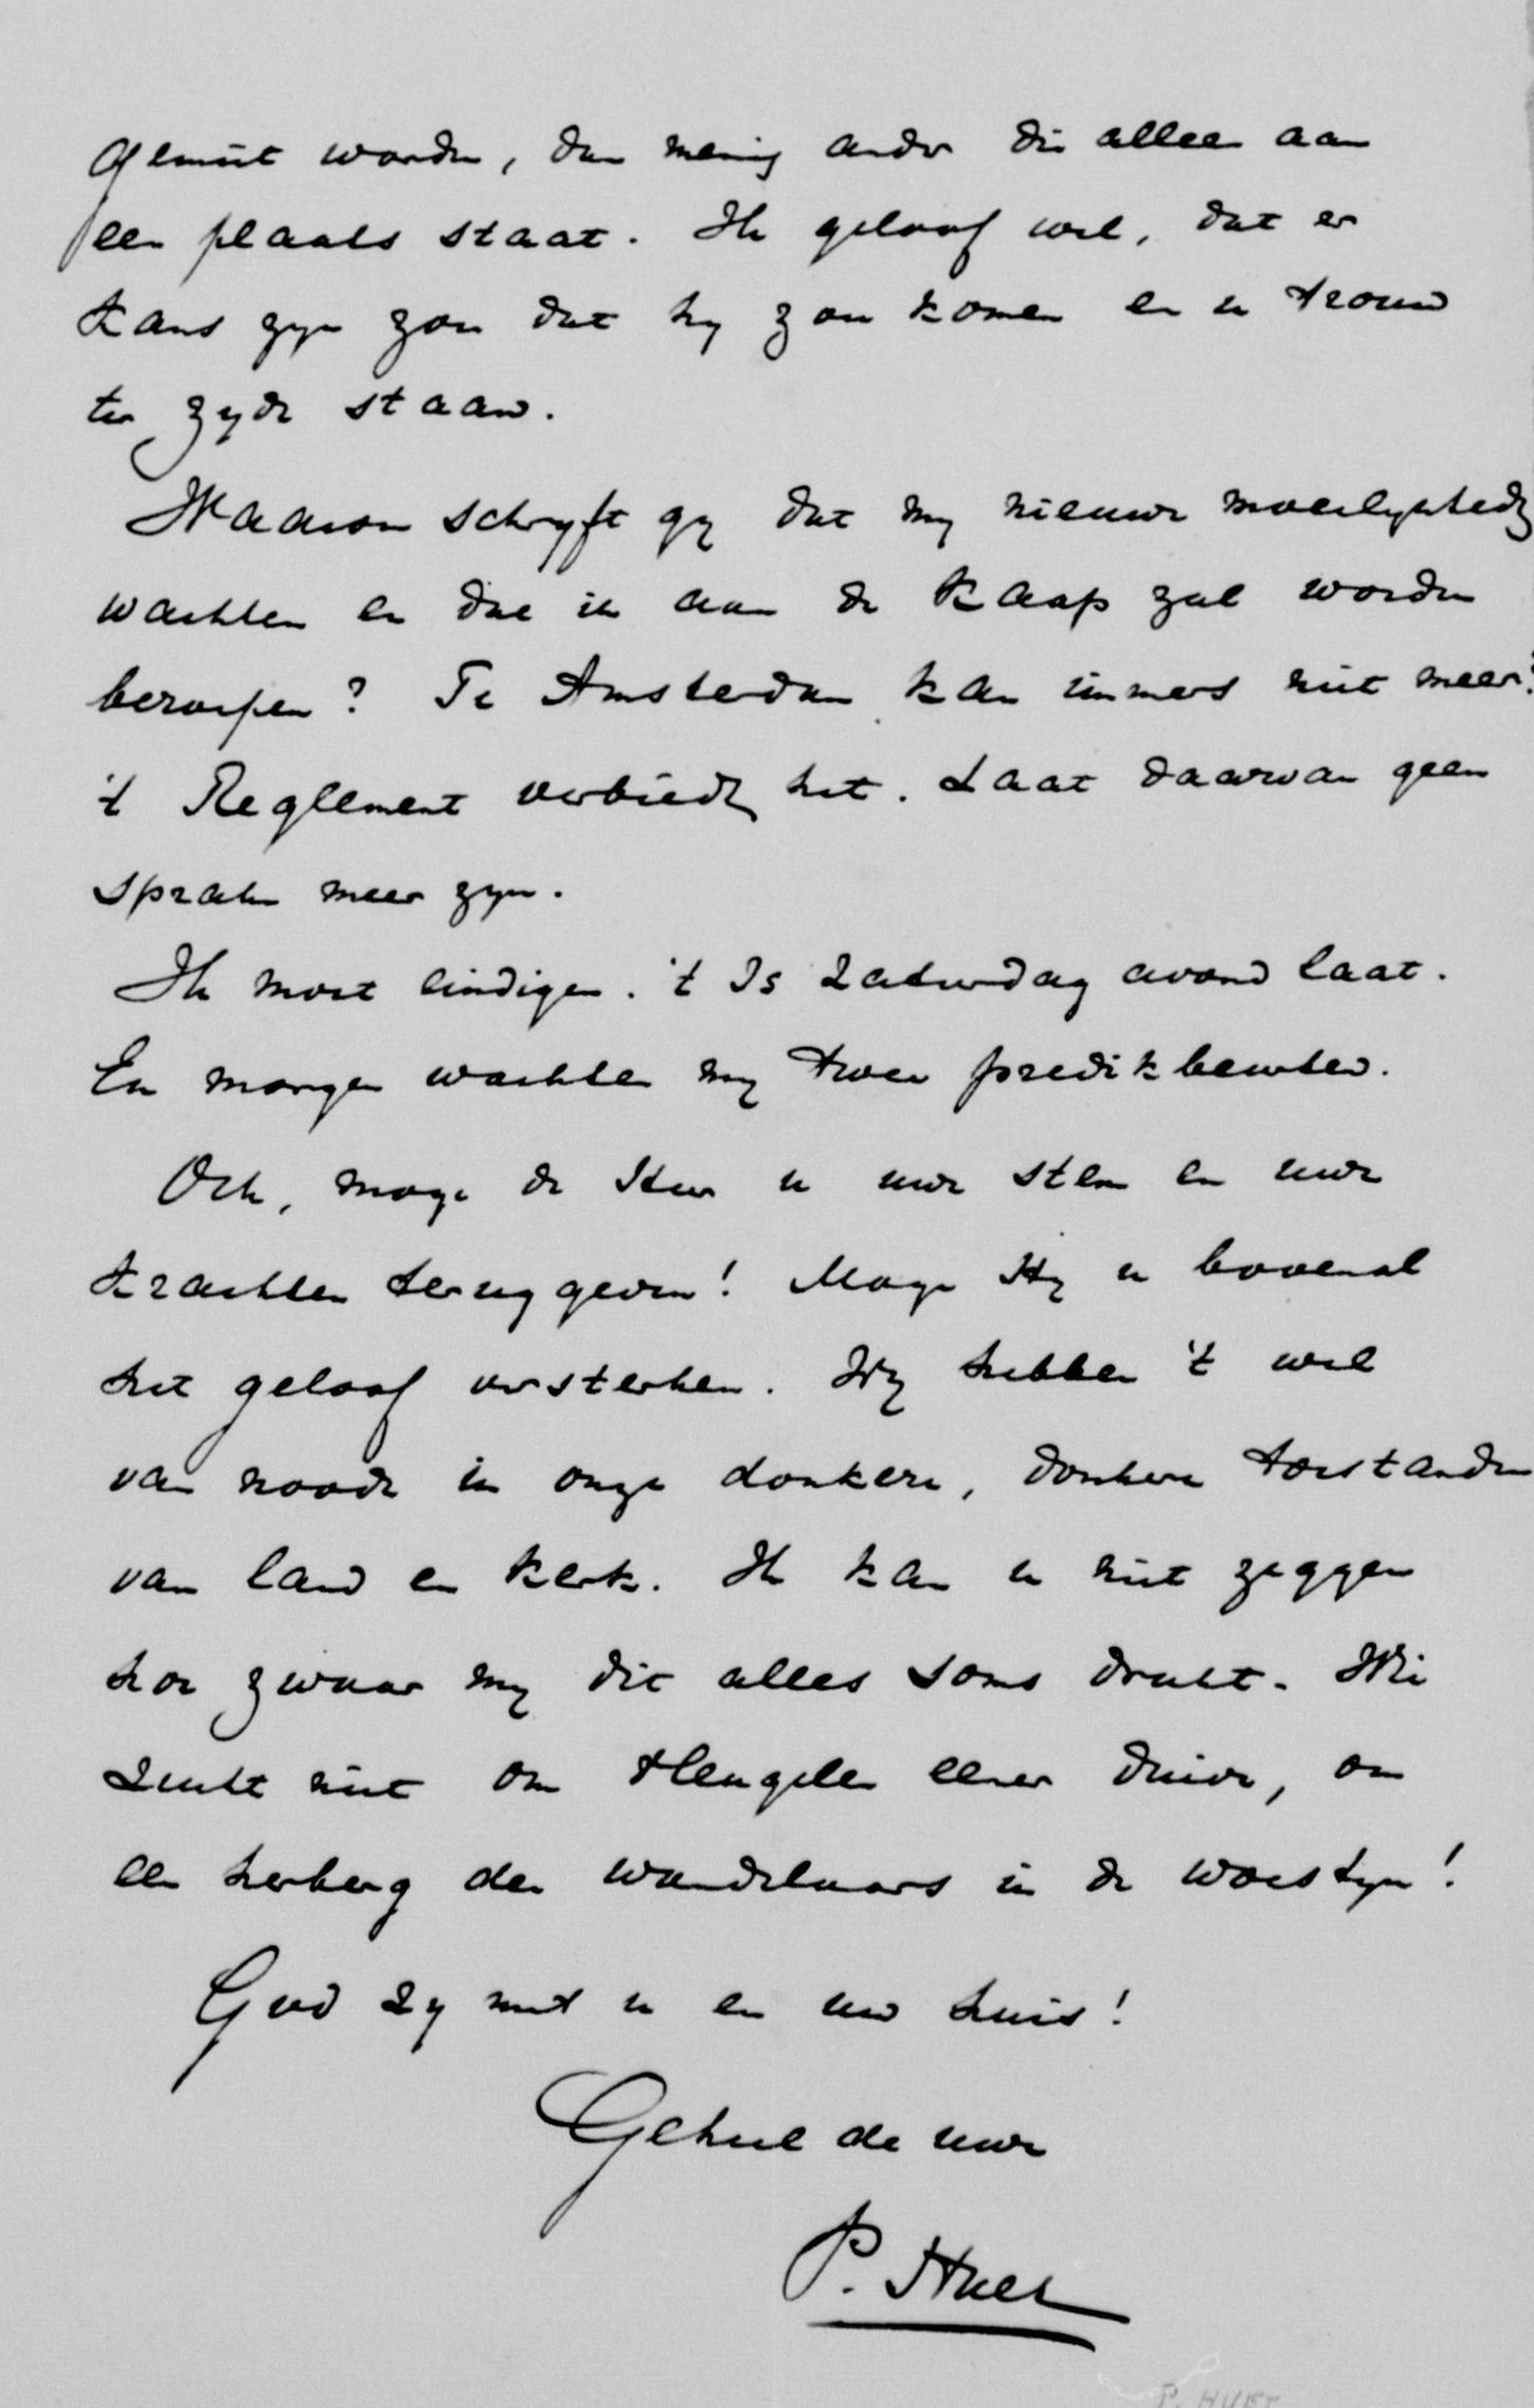 gemist worden, dan menig ander die alleen aan
een plaats staat. Ik geloof wel, dat er
kans zyn zou dat hy zou komen en u trouw
ter zyde staan.
Waarom schryft gy dat my nieuwe moeilykheden
wachten en dat ik aan de Kaap zal worden
beroepen? Te Amsterdam kan immers niet meer!
't Reglement verbiedt het. Laat daarvan geen
sprake meer zyn.
Ik moet eindigen. 't Is Zaturdag avond laat.
En morgen wachten my twee predikbeurten.
Och, moge de Heer u uwe stem en uwe
krachten teruggeven! Moge Hy u bovenal
het geloof versterken. Wy hebben 't wel
van noode in onze donkere, donkere toestanden
van land en kerk. Ik kan u niet zeggen
hoe zwaar my dit alles soms drukt. Wie
zucht niet om vleugelen eener duive, om
een herberg der wandelaars in de woestyn!
God zy met u en uw huis!
Geheel de uwe
P. Huet
P. HUET